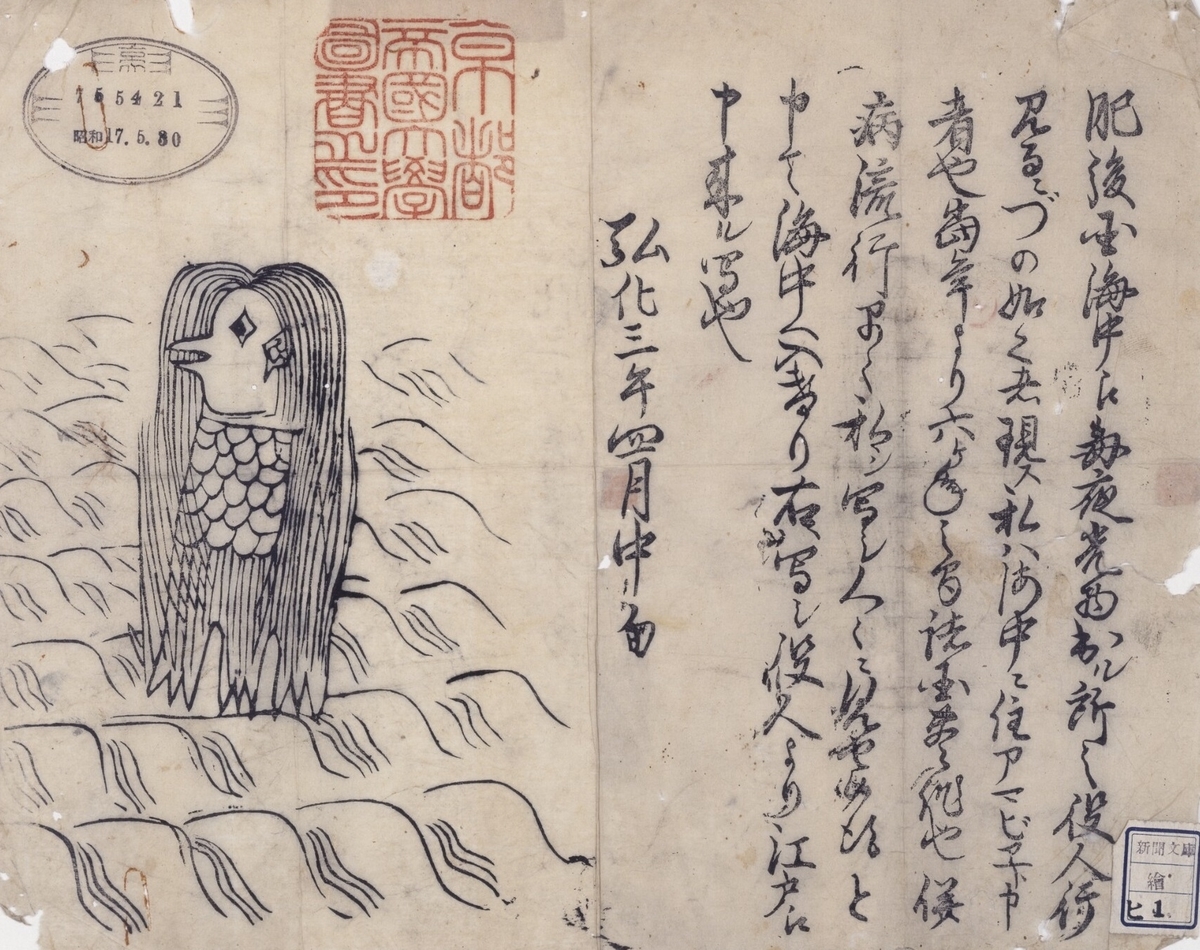 肥後国海中江毎夜光物出ル所之役人行
見るニづの如之者現ス私ハ海中ニ住アマビヱト申
者也当年より六ヶ年之間諸国豊作也併
病流行早々私ヲ写シ人々ニ見セ候得と
申て海中へ入けり右写シ役人より江戸江
申来ル写也
弘化三年四月中旬
京都
帝國大學
圖書之印
755421
昭和17.5.30
新聞文庫
繪
ヒ1